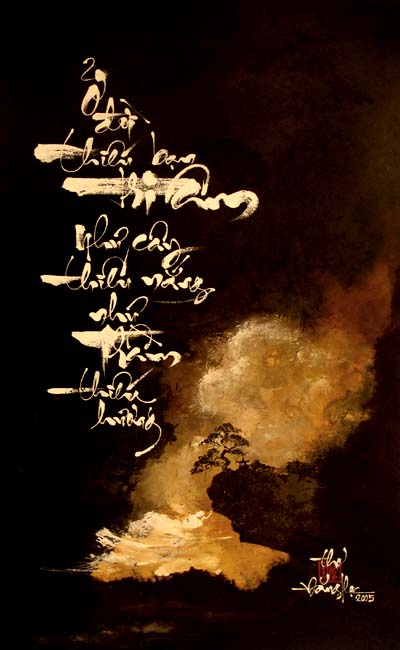 Ở
đời
thiếu bạn
tri âm
Như cây
thiếu nắng
như
trầm
thiếu
hương
thư
2005